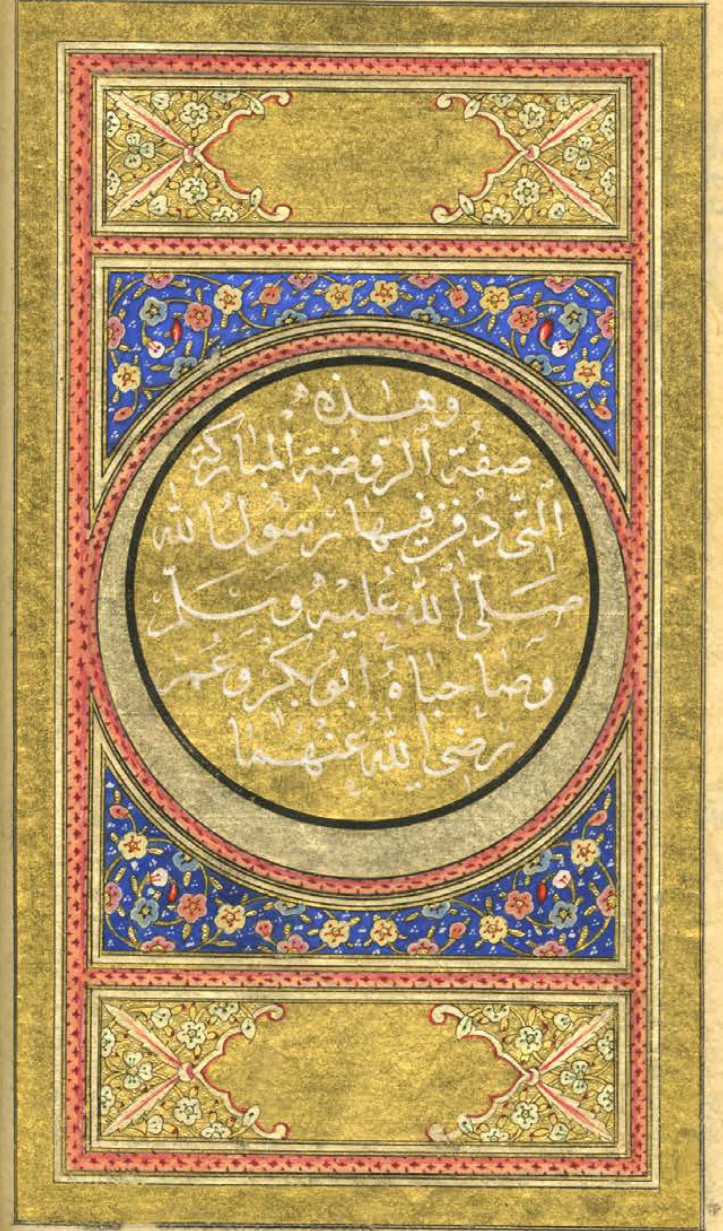 وهذه
صفة الروضة المباركة
التي دفن فيها رسول الله
صلى الله عليه وسلم
وصاحباه ابو بكر وعمر
رضي الله عنهما